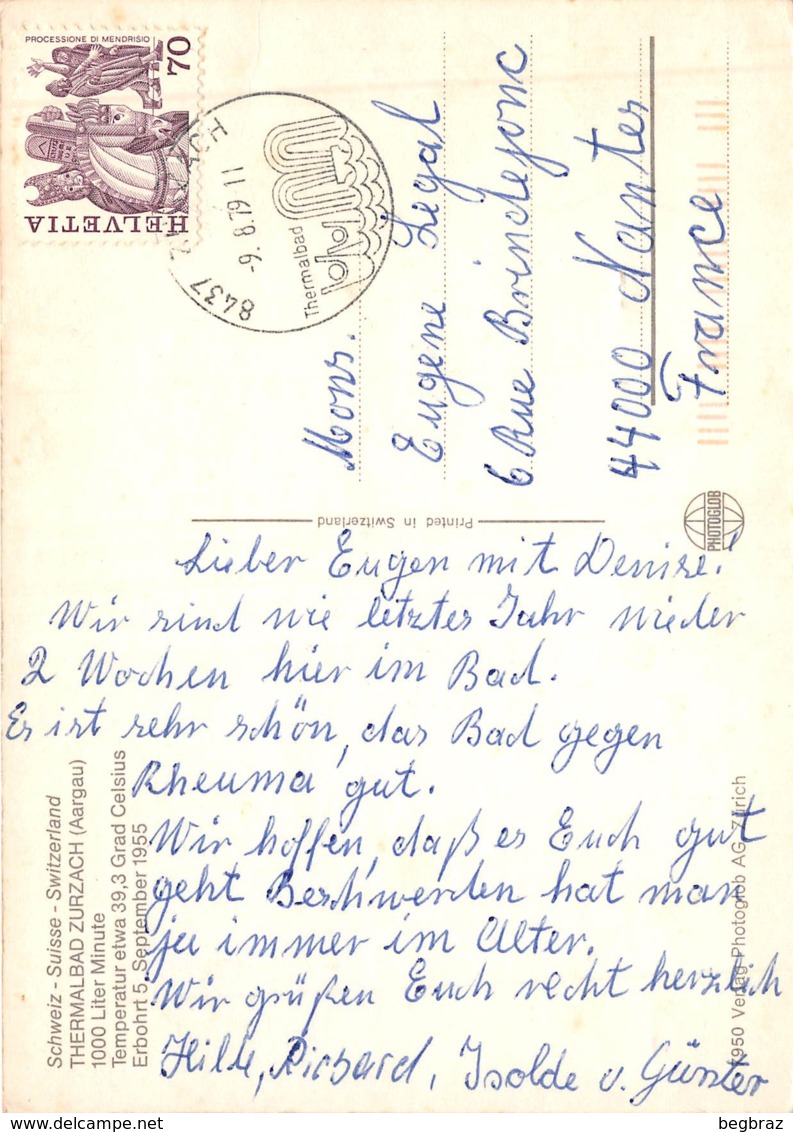 PROCESSIONE DI MENDRISIO
70
HELVETIA
8437 ZURZACH
-9.8.79 11
Thermalbad
Mons.
Eugene Legal
6 Rue Brindejonc
44000 Nantes
France
Printed in Switzerland
PHOTOGLOB
Lieber Eugen mit Denise!
Wir sind wie letztes Jahr wieder
2 Wochen hier im Bad.
Es ist sehr schön, das Bad gegen
Rheuma gut.
Wir hoffen, daß es Euch gut
geht Beschwerden hat man
ja immer im Alter.
Wir grüßen Euch recht herzlich
Hilde, Richard, Isolde u. Günter
Schweiz - Suisse - Switzerland
THERMALBAD ZURZACH (Aargau)
1000 Liter Minute
Temperatur etwa 39,3 Grad Celsius
Erbohrt 5. September 1955
7950 Verlag Photoglob AG, Zürich
begbraz